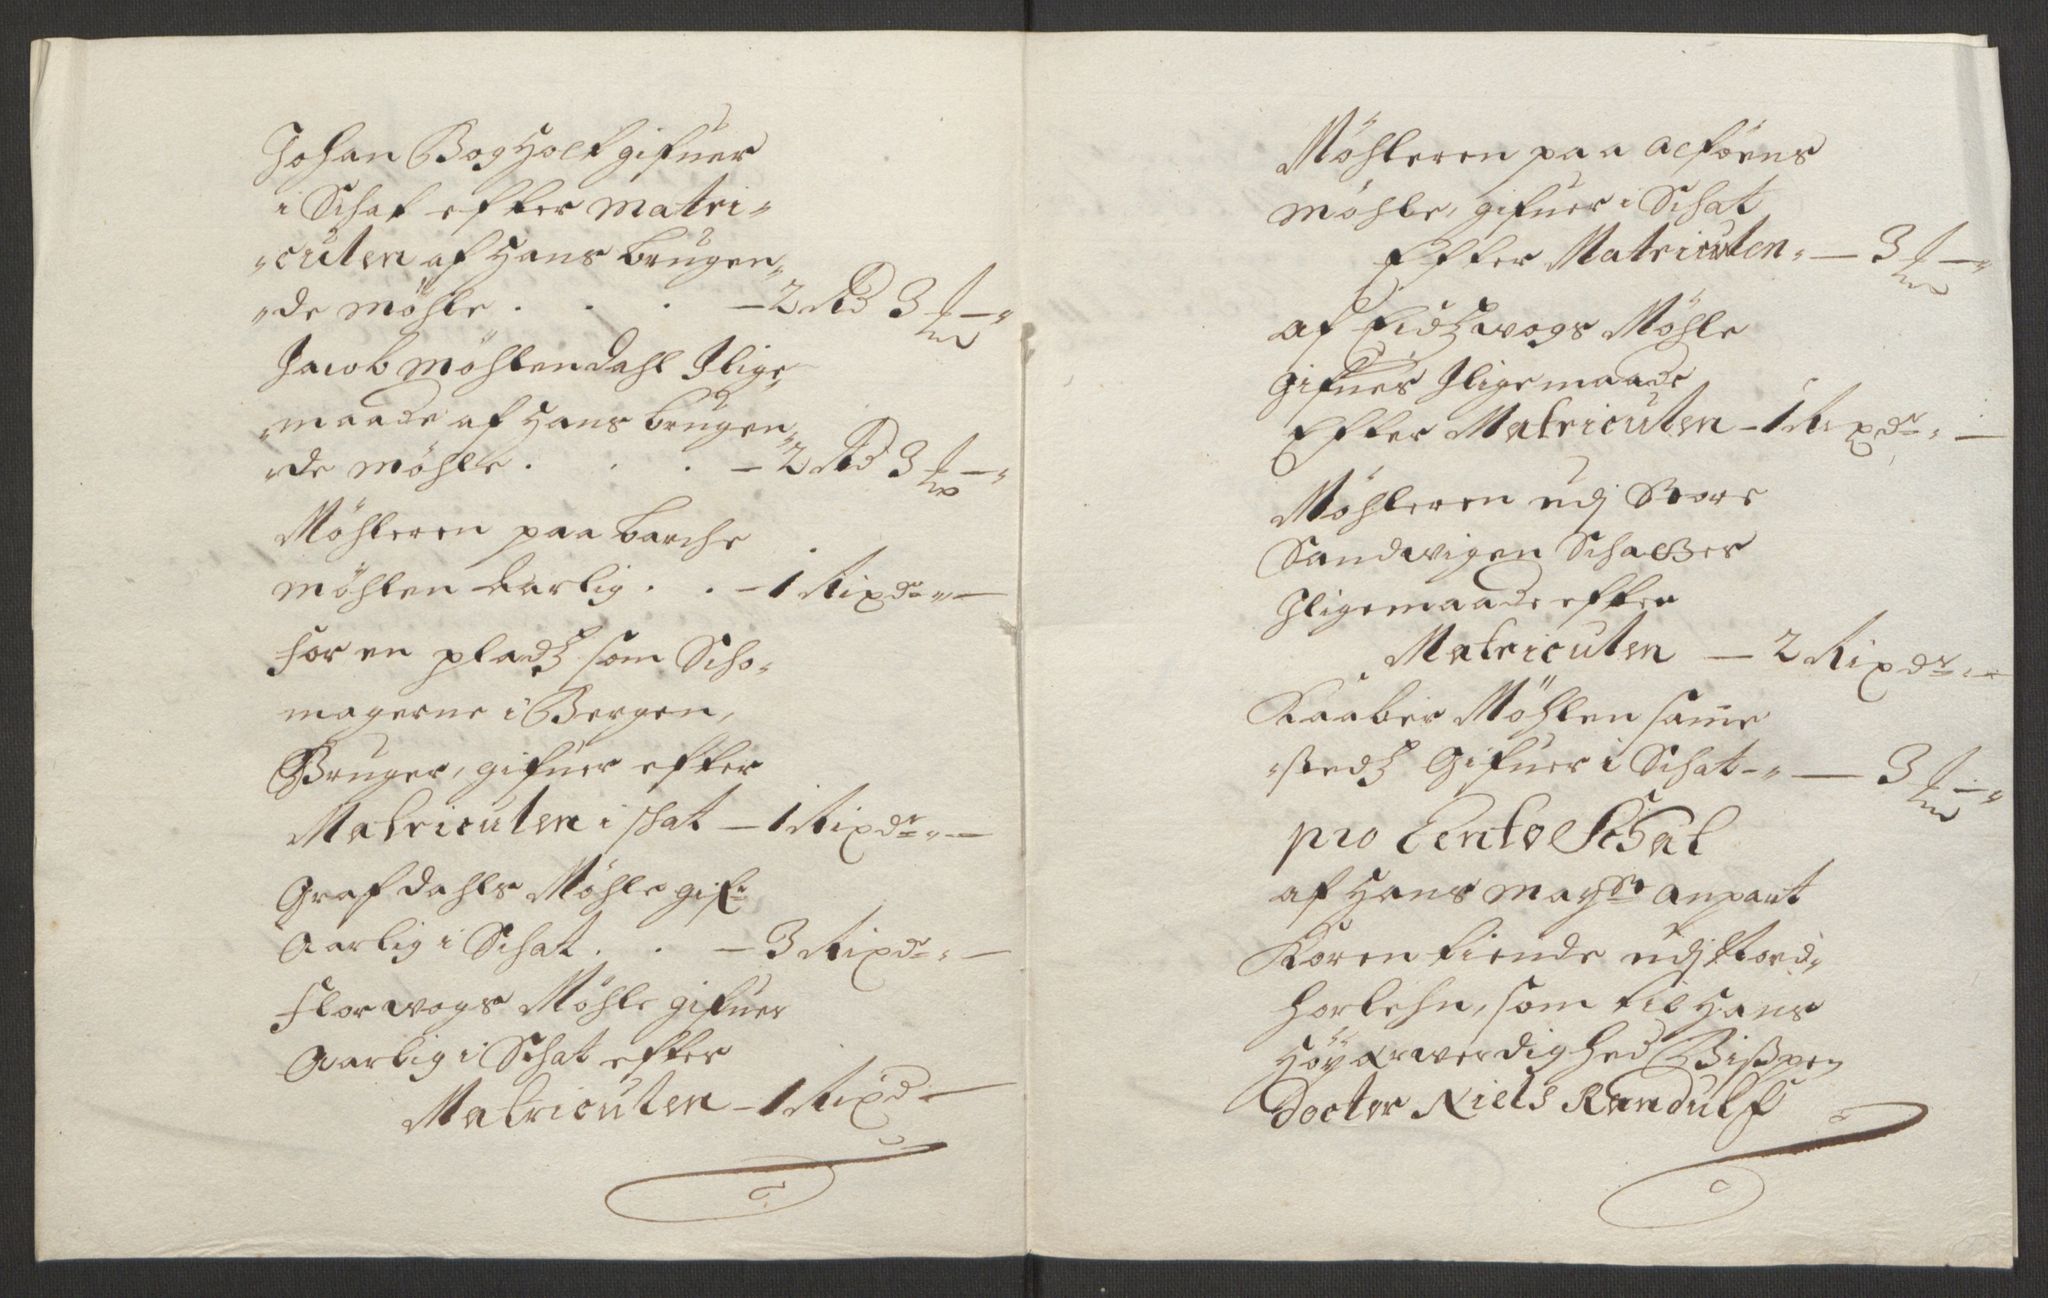 Johan Bogholt gifuer
i Schat efter Matri-
-culen af Hans brugen-
-de Möhle . . . — 2 Rd 3 ort — "
Jacob Möhlendahl Jlige-
-maade af Hans brugen-
-de Möhle . . . — 2 Rd 3 ort — "
Möhleren paa Barche
Möhlen Aarlig . . — 1 Rixdr " —
for en pladz som Scho-
magerne i Bergen,
Bruger, gifuer efter
Matriculen i schat — 1 Rixdr " —
Grafdahls Möhle gifr
Aarlig i Schat . . — 3 Rixdr " —
Florwogs Möhle gifuer
Aarlig i Schat efter
Matriculen — 1 Rixd —
Möhleren paa Alföens
Möhle, gifuer i Schat
Efter Matriculen " — 3 ort — "
af Eidzwogs Möhle
gifues Jligemaade
Efter Matriculen — 1 Rixdr " —
Möhleren udj Store
Sandwigen Schatter
Jligemaade efter
Matriculen — 2 Rixdr " —
Kaaber Möhlen samme
-stedz Gifuer i Schat — " — 3 ort — "
pro Cento Schat
af Hans Maysts Anpart
Koren tiende udj Nord-
horlehn, som til Hans
Höyærwerdighed Bispen
Docter Niels Randulf